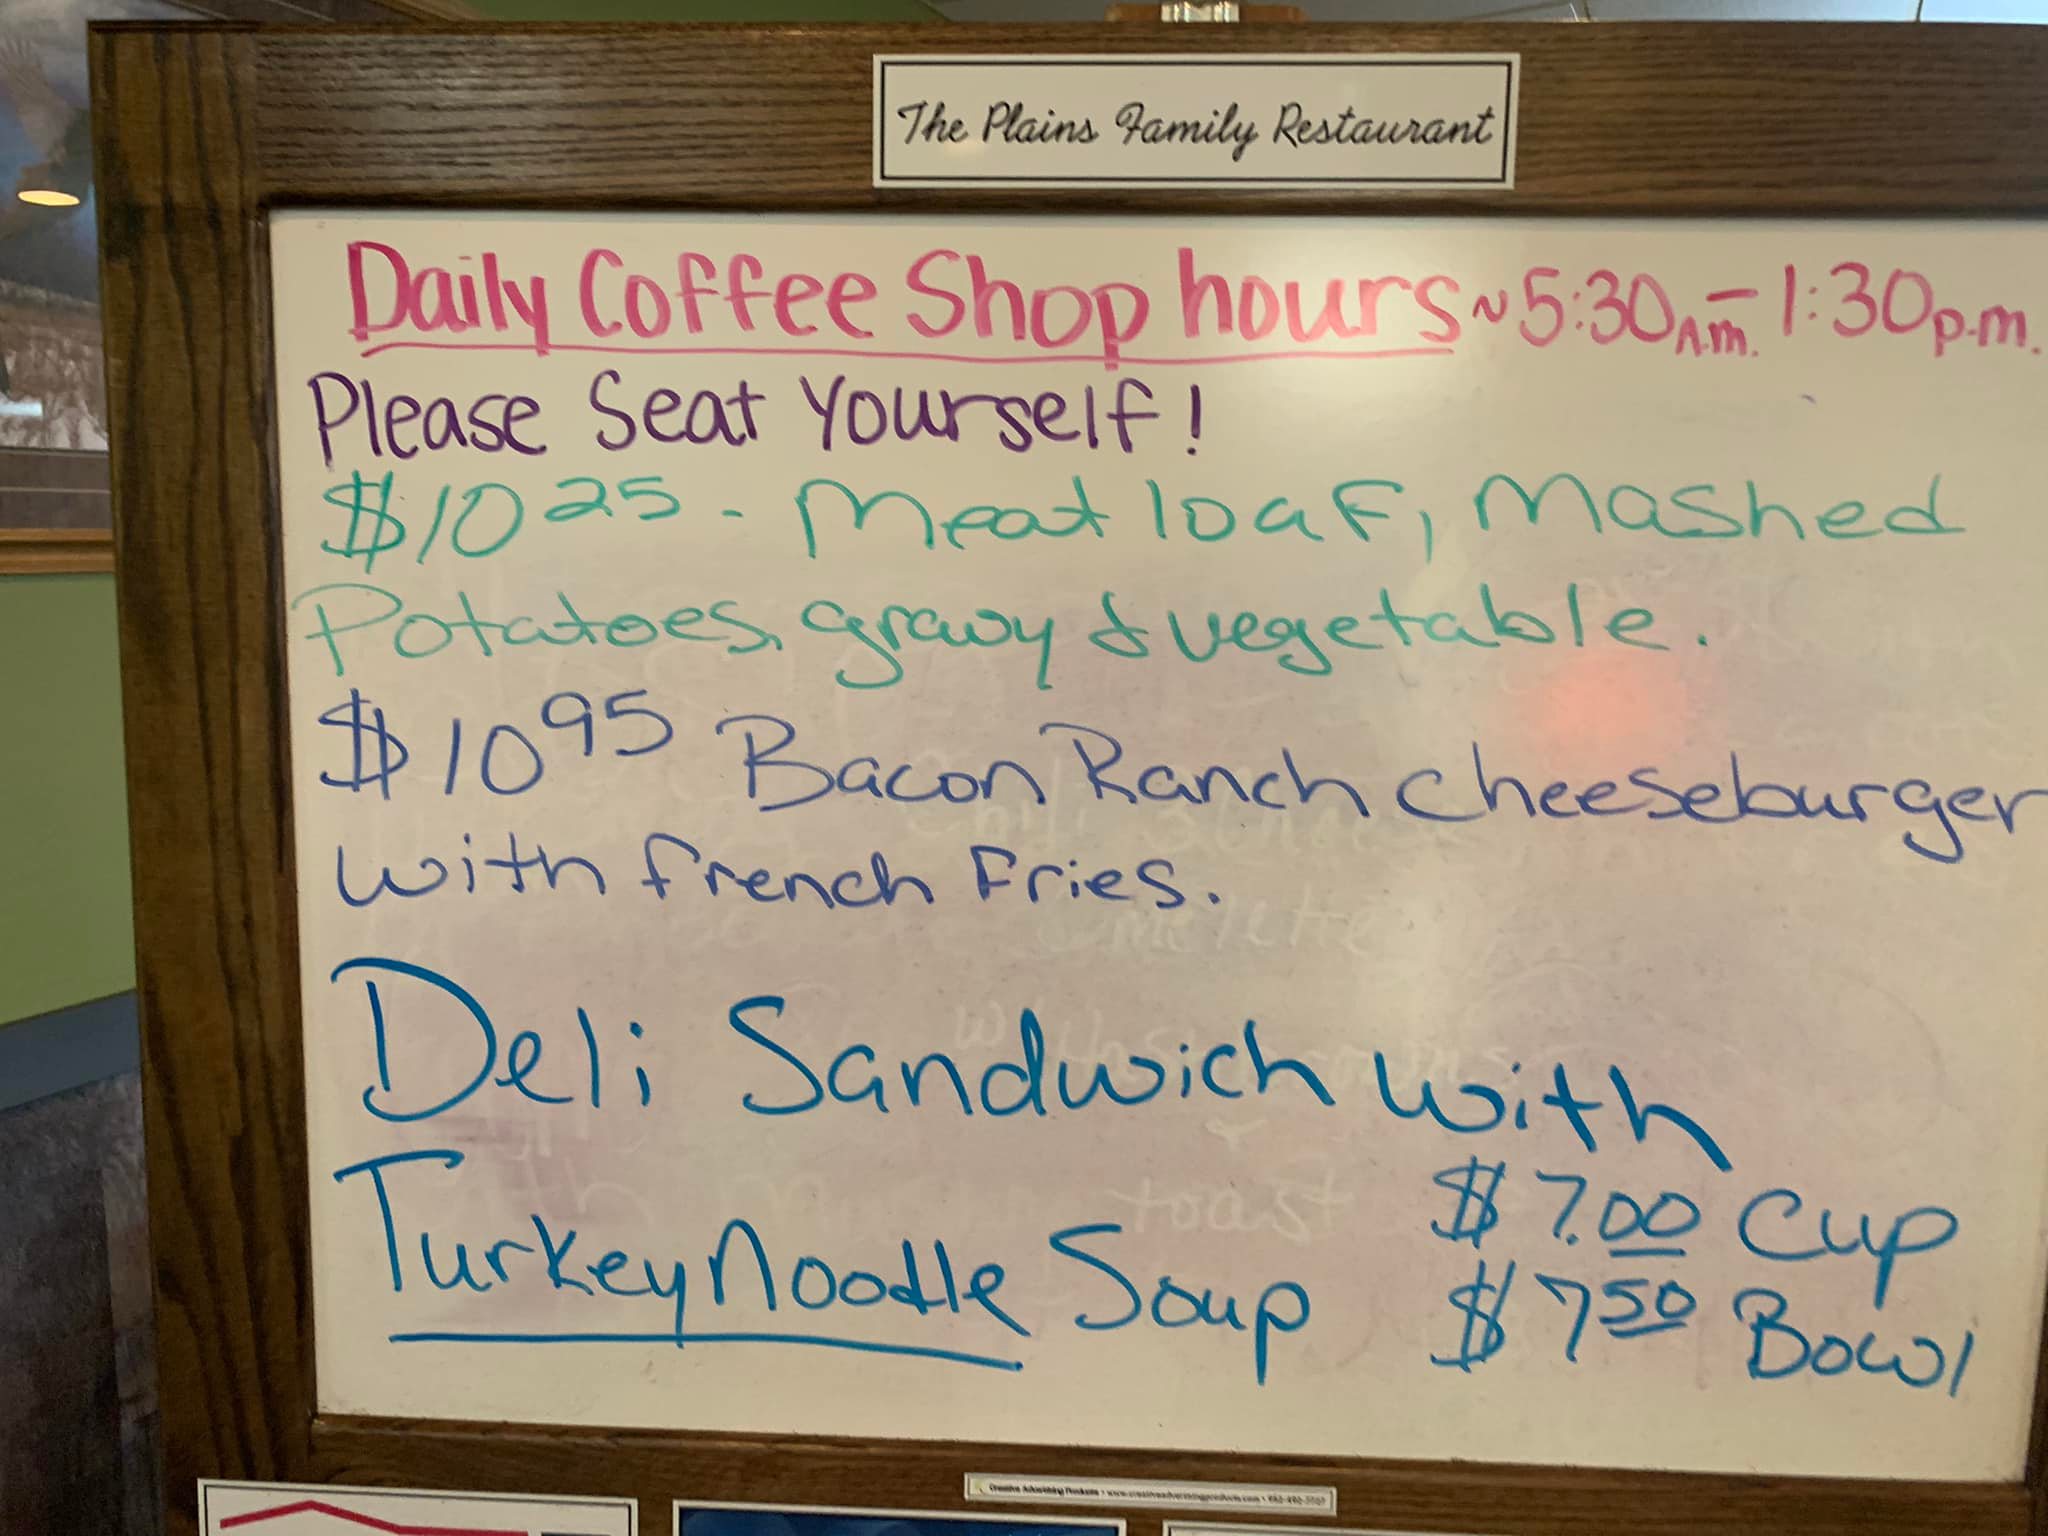 The Plains Family Restaurant
Daily Coffee Shop hours ~ 5:30 A.m. - 1:30 p.m.
Please Seat Yourself!
$10 25 - Meat loaf, Mashed
Potatoes, gravy & vegetable.
$10 95 Bacon Ranch Cheeseburger
with french Fries.
Deli Sandwich with
Turkey Noodle Soup
$7.00 Cup
$7 50 Bowl
toast
Creative Advertising Products